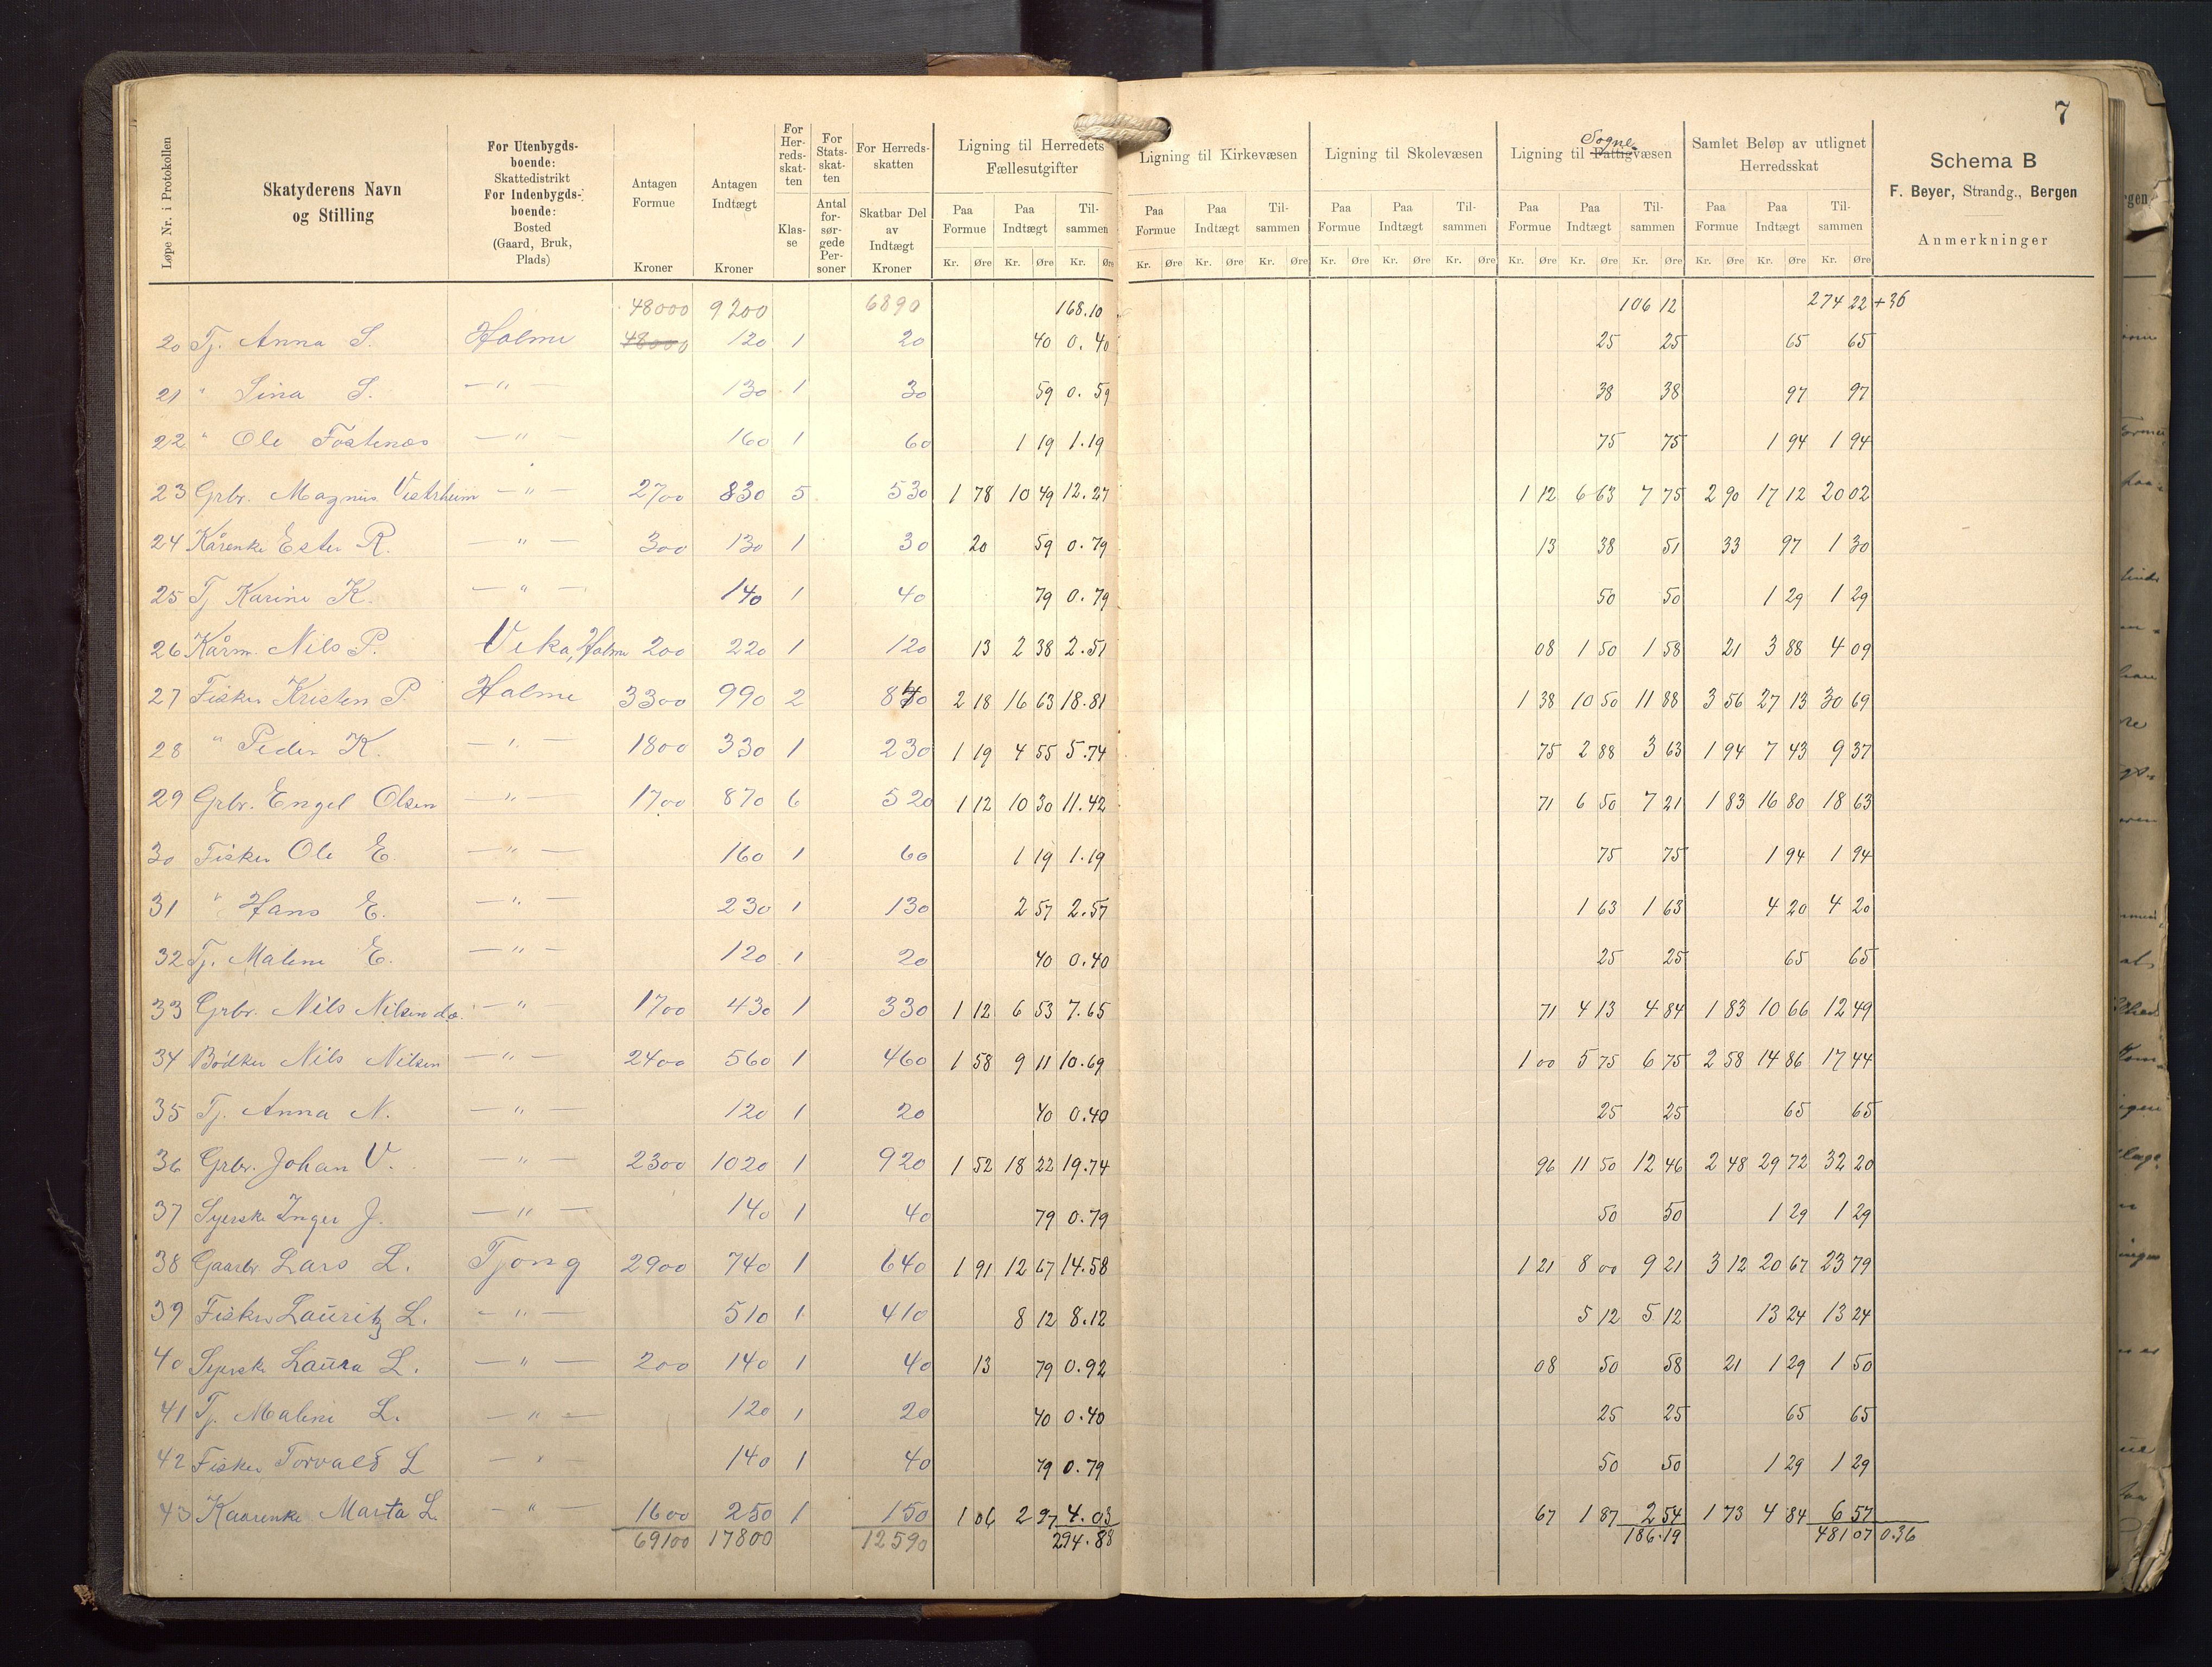 7
Løpe Nr. i Protokollen
Skatyderens Navn og Stilling
For Utenbygdsboende: Skattedistrikt For Indenbygdsboende: Bosted (Gaard, Bruk, Plads)
Antagen Formue Kroner
Antagen Indtægt Kroner
For Herredsskatten Klasse
For Statsskatten Antal forsørgede Personer
For Herredsskatten Skatbar Del av Indtægt Kroner
Ligning til Herredets Fællesutgifter
Paa Formue Paa Indtægt Tilsammen
Kr. Øre Kr. Øre Kr. Øre
Ligning til Kirkevæsen
Paa Formue Paa Indtægt Tilsammen
Kr. Øre Kr. Øre Kr. Øre
Ligning til Skolevæsen
Paa Formue Paa Indtægt Tilsammen
Kr. Øre Kr. Øre Kr. Øre
Sogne
Ligning til Fattigvæsen
Paa Formue Paa Indtægt Tilsammen
Kr. Øre Kr. Øre Kr. Øre
Samlet Beløp av utlignet Herredsskat
Paa Formue Paa Indtægt Tilsammen
Kr. Øre Kr. Øre Kr. Øre
Schema B
F. Beyer, Strandg., Bergen
Anmerkninger
48000 9200 6890 168.10 106 12 274 22 +36
20 Tj. Anna S. Holme 48000 120 1 20 40 0.40 25 25 65 65
21 " Sina S. — " — 130 1 30 59 0.59 38 38 97 97
22 " Ole Fostenæs — " — 160 1 60 1 19 1.19 75 75 1 94 1 94
23 Grbr. Magnus Vestrheim — " — 2700 830 5 530 1 78 10 49 12.27 1 12 6 63 7 75 2 90 17 12 20 02
24 Kårenke Ester R. — " — 300 130 1 30 20 59 0.79 13 38 51 33 97 1 30
25 Tj Karine K. — " — 140 1 40 79 0.79 50 50 1 29 1 29
26 Kårm. Nils P. Vika, Holme 200 220 1 120 13 2 38 2.51 08 1 50 1 58 21 3 88 4 09
27 Fisker Kristen P. Holme 3300 990 2 840 2 18 16 63 18.81 1 38 10 50 11 88 3 56 27 13 30 69
28 " Peder K. — " — 1800 330 1 230 1 19 4 55 5.74 75 2 88 3 63 1 94 7 43 9 37
29 Grbr. Engel Olsen — " — 1700 870 6 520 1 12 10 30 11.42 71 6 50 7 21 1 83 16 80 18 63
30 Fisker Ole E. — " — 160 1 60 1 19 1.19 75 75 1 94 1 94
31 " Hans E. — " — 230 1 130 2 57 2.57 1 63 1 63 4 20 4 20
32 Tj. Malene E. — " — 120 1 20 40 0.40 25 25 65 65
33 Grbr. Nils Nilsen d.æ. — " — 1700 430 1 330 1 12 6 53 7.65 71 4 13 4 84 1 83 10 66 12 49
34 Bödker Nils Nilsen — " — 2400 560 1 460 1 58 9 11 10.69 1 00 5 75 6 75 2 58 14 86 17 44
35 Tj. Anna N. — " — 120 1 20 40 0.40 25 25 65 65
36 Grbr. Johan V. — " — 2300 1020 1 920 1 52 18 22 19.74 96 11 50 12 46 2 48 29 72 32 20
37 Syerske Inger J. — " — 140 1 40 79 0.79 50 50 1 29 1 29
38 Gaarbr Lars L. Tjong 2900 740 1 640 1 91 12 67 14.58 1 21 8 00 9 21 3 12 20 67 23 79
39 Fisker Lauritz L. — " — 510 1 410 8 12 8.12 5 12 5 12 13 24 13 24
40 Syerske Laura L. — " — 200 140 1 40 13 79 0.92 08 50 58 21 1 29 1 50
41 Tj. Maline L. — " — 120 1 20 40 0.40 25 25 65 65
42 Fisker Torvald L — " — 140 1 40 79 0.79 50 50 1 29 1 29
43 Kaarenke Marta L. — " — 1600 250 1 150 1 06 2 97 4.03 67 1 87 2 54 1 73 4 84 6 57
69100 17800 12590 294.88 186.19 481 07 0.36